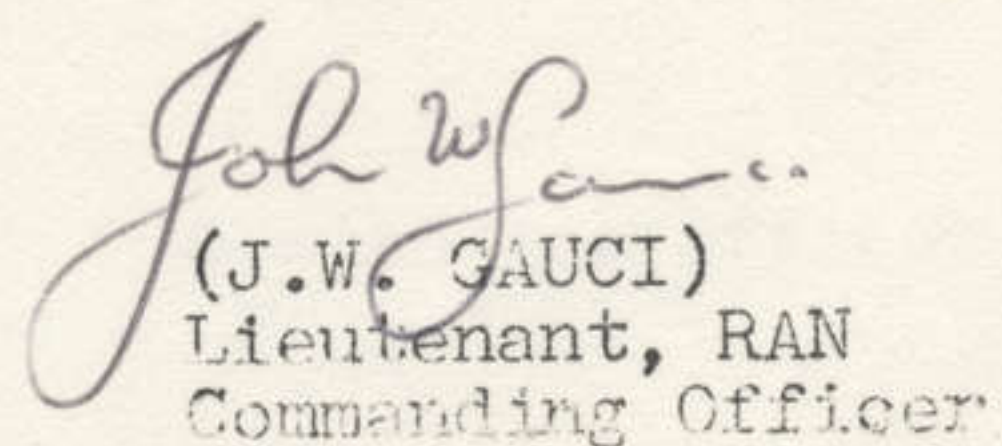 John W Gauci
(J.W. GAUCI)
Lieutenant, RAN
Commanding Officer